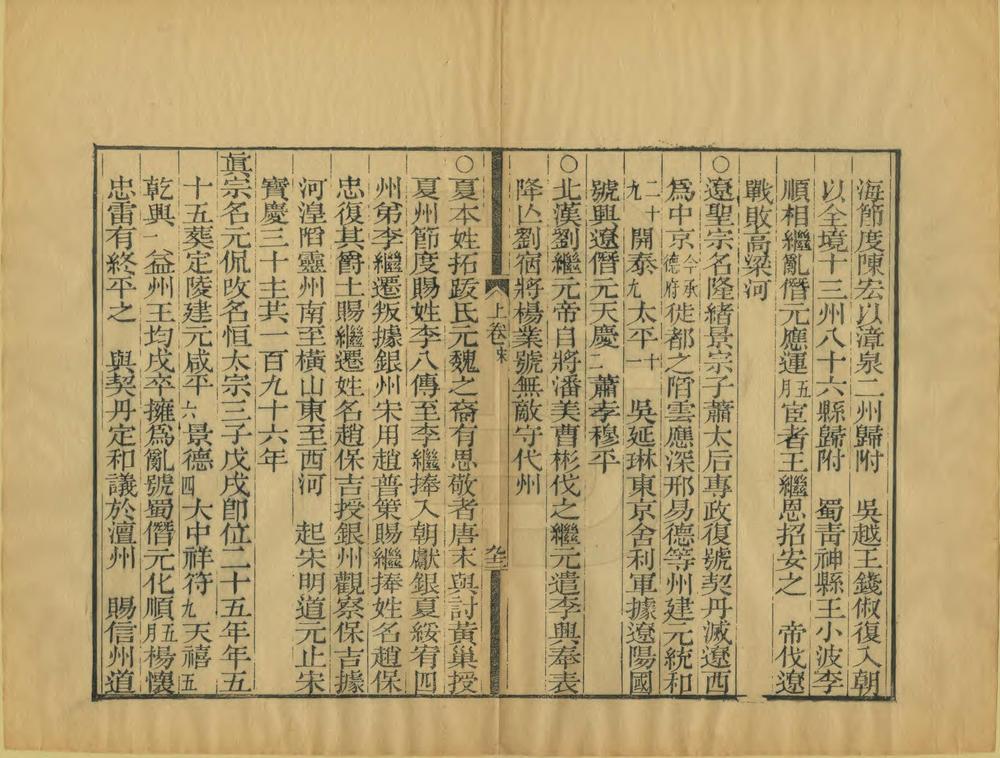 海節度陳宏以漳泉二州歸附　吳越王錢俶復入朝
以全境十三州八十六縣歸附　蜀靑神縣王小波李
順相繼亂僭元應運五月宦者王繼恩招安之　帝伐遼
戰敗高梁河
○遼聖宗名隆緒景宗子蕭太后專政復號契丹滅遼西
爲中京今承德府徙都之陷雲應深邢易德等州建元統和
二十九開泰九太平十一　吳延琳東京舍利軍據遼陽國
號興遼僭元天慶二蕭孝穆平
○北漢劉繼元帝自將潘美曹彬伐之繼元遣李興奉表
降亾劉宿將楊業號無敵守代州
上卷末
○夏本姓拓跋氏元魏之裔有思敬者唐末與討黃巢授
夏州節度賜姓李八傳至李繼捧入朝獻銀夏綏宥四
州弟李繼遷叛據銀州宋用趙普策賜繼捧姓名趙保
忠復其爵土賜繼遷姓名趙保吉授銀州觀察保吉據
河湟陷靈州南至橫山東至西河　起宋明道元止宋
寶慶三十主共一百九十六年
眞宗名元侃改名恒太宗三子戊戌卽位二十五年年五
十五葬定陵建元咸平六景德四大中祥符九天禧五
乾興一益州王均戍卒擁爲亂號蜀僭元化順五月楊懷
忠雷有終平之　與契丹定和議於澶州　賜信州道